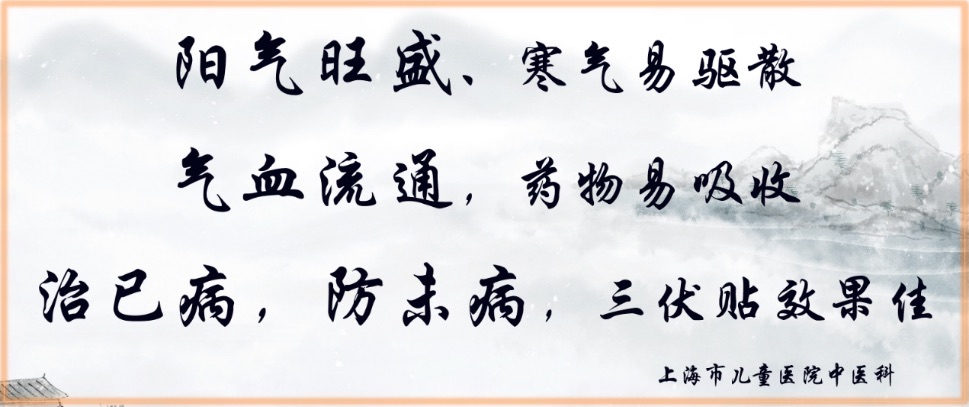 阳气旺盛、寒气易驱散
气血流通，药物易吸收
治已病，防未病，三伏贴效果佳
上海市儿童医院中医科